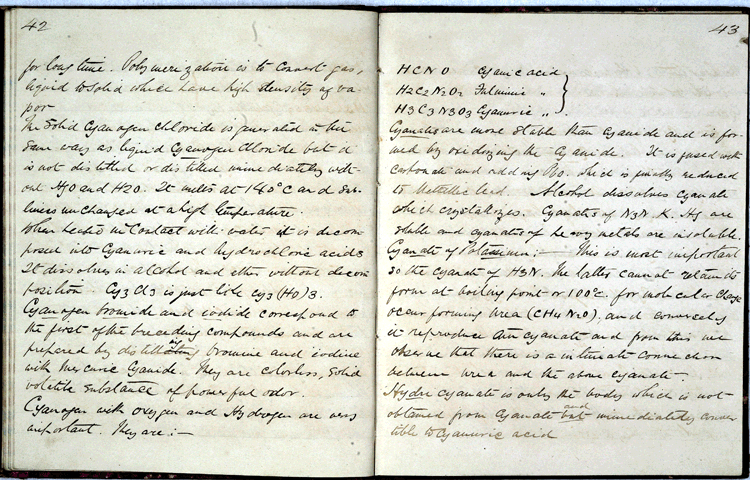 42
for long time. Polymerization is to convert gas,
liquid to solid which have high density of va-
por
The Solid Cyanogen chloride is generated in the
same way as liquid Cyanogen Chloride but it
is not distilled or distilled immediately with-
out HgO and H2O. It melts at 140°C and
unchanged at a high temperature.
When heated in Contact with water it is decom-
posed into Cyanuric and hydrochloric acids
It dissolves in alcohol and ether without decom
position. Cy3 Cl3 is just like Cy3(HO)3.
Cyanogen bromide and iodide correspond to
the first of the preceding compounds and are
prepared by distillating bromine and iodine
with Mercuric Cyanide. They are colorless, solid
volatile substance of powerful odor.
Cyanogen with oxygen and Hydrogen are very
important. They are:—
43
HCNO Cyanic acid
H2C2N2O2 Fulminic "
H3C3N3O3 Cyanuric "
Cyanates are more stable than Cyanide and is for-
med by oxidizing the Cyanide. It is fused with
Carbonate and adding PbO. which is finally reduced
to Metallic lead. Alcohol dissolves Cyanate
which crystallizes. Cyanates of K. are
stable and cyanates of heavy metals are insoluble.
Cyanate of Potassium:— This is most important
so the cyanate of H3N. The latter cannot retain its
form at boiling point or 100°C, for molecular change
occur forming Urea (CH4N2O), and conversely
it reproduce Am cyanate and from this we
observe that there is a intimate connection
between urea and the above cyanate.
Hydric cyanate is only the body which is not
obtained from Cyanate but and immediately conver
tible to Cyanuric acid